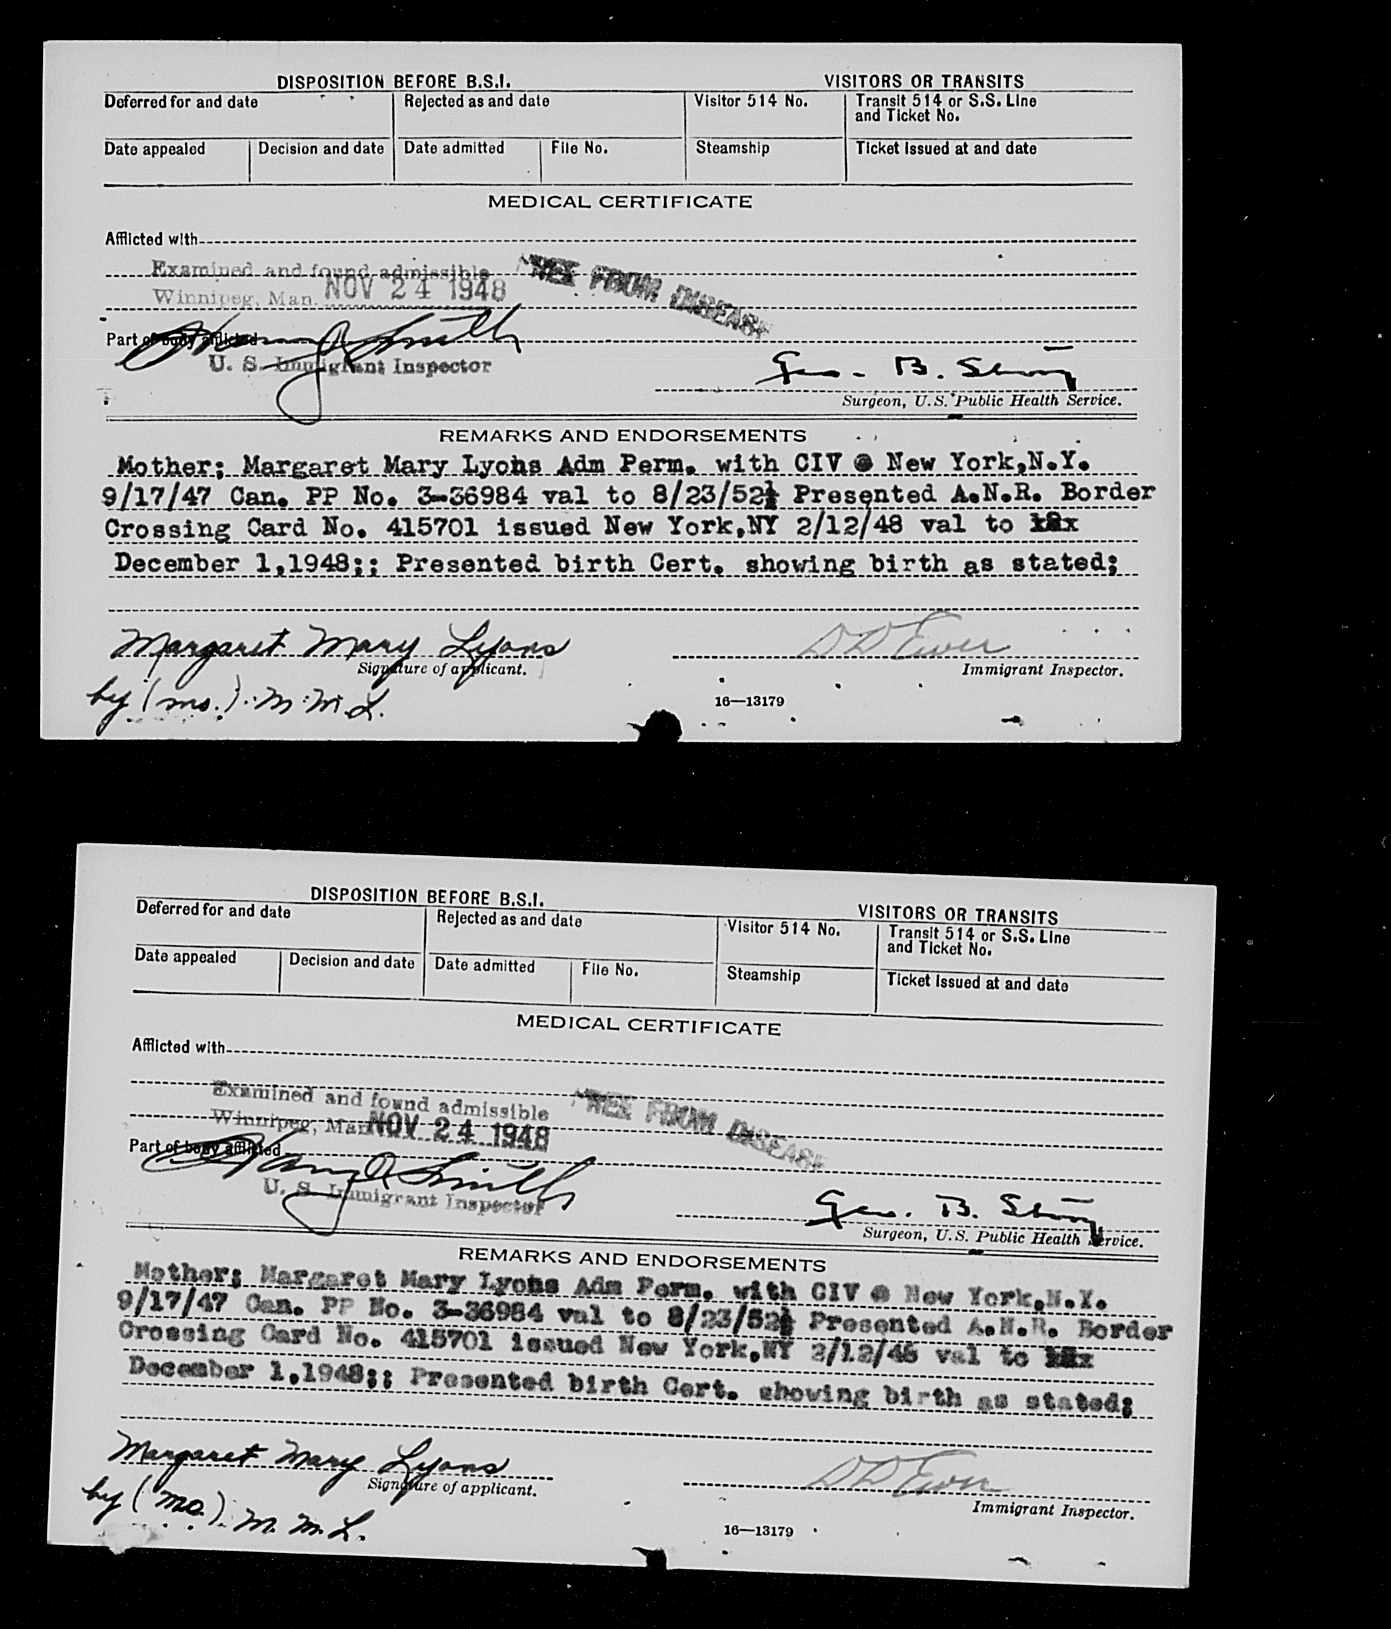 DISPOSITION BEFORE B.S.I.
VISITORS OR TRANSITS
Deferred for and date
Rejected as and date
Visitor 514 No.
Transit 514 or S.S. Line
and Ticket No.
Date appealed
Decision and date
Date admitted
File No.
Steamship
Ticket issued at and date
MEDICAL CERTIFICATE
Afflicted with
Examined and found admissible
FREE FROM DISEASE
Winnipeg, Man. NOV 24 1948
Part of body afflicted
Smith
U. S. Immigrant Inspector
Geo. B.
Surgeon, U.S. Public Health Service.
REMARKS AND ENDORSEMENTS
Mother; Margaret Mary Lyons Adm Perm. with CIV @ New York,N.Y.
9/17/47 Can. PP No. 3-36984 val to 8/23/52; Presented A.N.R. Border
Crossing Card No. 415701 issued New York,NY 2/12/48 val to
December 1,1948;; Presented birth Cert. showing birth as stated;
Margaret Mary Lyons
Signature of applicant.
Immigrant Inspector.
by (mo.) M. M. L.
16—13179
DISPOSITION BEFORE B.S.I.
VISITORS OR TRANSITS
Deferred for and date
Rejected as and date
Visitor 514 No.
Transit 514 or S.S. Line
and Ticket No.
Date appealed
Decision and date
Date admitted
File No.
Steamship
Ticket issued at and date
MEDICAL CERTIFICATE
Afflicted with
Examined and found admissible
FREE FROM DISEASE
Winnipeg, Man. NOV 24 1948
Part of body afflicted
Smith
U. S. Immigrant Inspector
Geo. B.
Surgeon, U.S. Public Health Service.
REMARKS AND ENDORSEMENTS
Mother; Margaret Mary Lyons Adm Perm. with CIV @ New York,N.Y.
9/17/47 Can. PP No. 3-36984 val to 8/23/52; Presented A.N.R. Border
Crossing Card No. 415701 issued New York,NY 2/12/48 val to
December 1,1948;; Presented birth Cert. showing birth as stated;
Margaret Mary Lyons
Signature of applicant.
Immigrant Inspector.
by (mo.) M. M. L.
16—13179